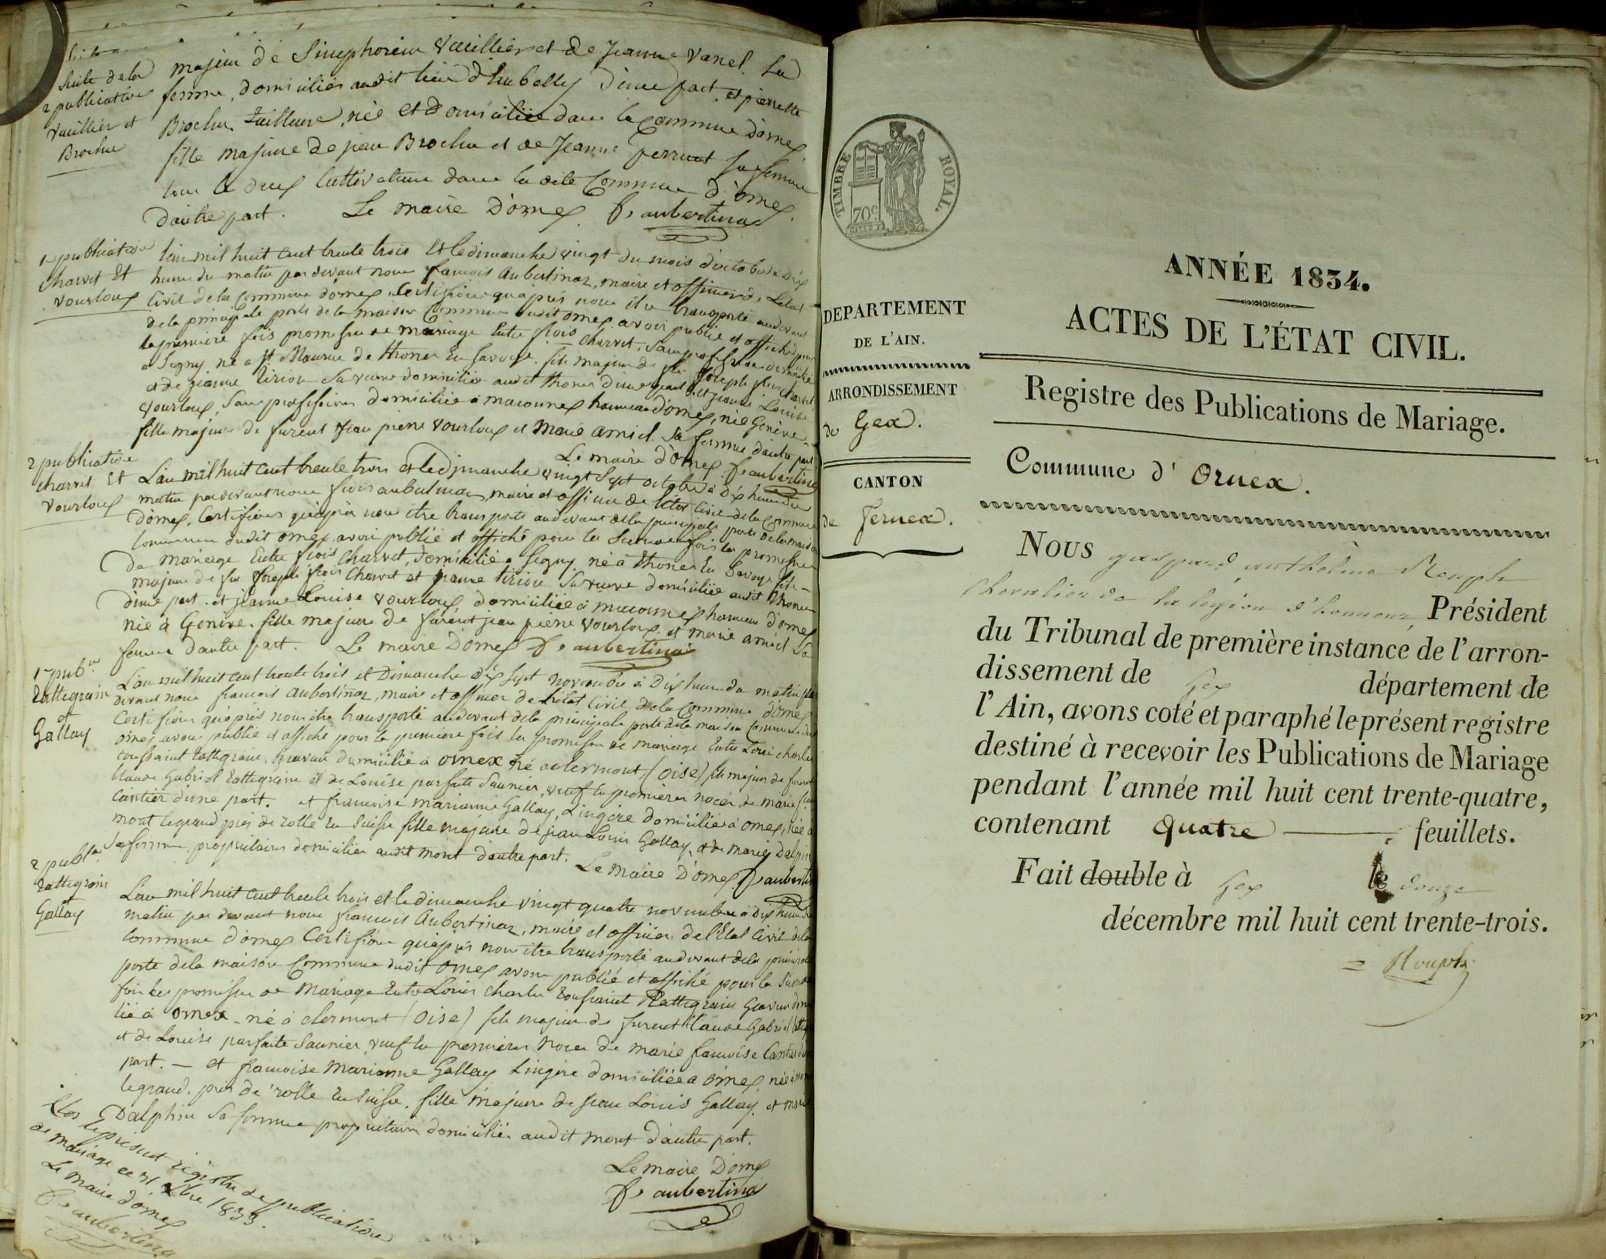 Suite de la
2 publication
Vuillier et
Brochu
majeur de Simphorien Vuillier et de Jeanne Vanel. Sa
femme, domiciliés audit lieu d'une part, et pierrette
Brochu tailleuse, née et domiciliée dans la Commune d'ornex
fille majeure de jean Brochu et de Jeanne perruet sa femme
tous les deux Cultivateurs dans la dite Commune d'ornex
d'autre part. Le maire D'ornex fs aubertinaz
1e publication
Charvet Et
Vourloux
L'an mil huit cent trente trois Et le dimanche vingt du mois d'octobre à dix
heures du matin par devant nous françois Aubertinaz, maire et officier de L'état
Civil de la Commune d'ornex. Certifions qu'après nous être transporté au devant
de la principale porte de la maison Commune dudit ornex avoir publié et affiché pour
la première fois promesse de mariage Entre frois Charvet, Sans profession domicilié
à Segny, né à St Maurice de thones En Savoye, fils majeur de feu Joseph frois Charvet
et de jeanne Sa veuve domiciliée audit thones d'une part et jeanne Louise
Vourloux, Sans profession domiciliée à maconnex hameau d'ornex, née Genève
fille majeure de furent jean pierre Vourloux et Marie amiel Sa femme d'autre part
Le maire d'ornex fs aubertinaz
2 publication
Charvet Et
Vourloux
L'an mil huit cent trente trois et le dimanche vingt Sept octobre à dix heures du
matin par devant nous frois aubertinaz, maire et officier de l'état Civil de la Commune
D'ornex, Certifions qu'après nous être transporté au devant de la principale porte de la maison
Commune dudit ornex avoir publié et affiché pour la Seconde fois la promesse
De mariage Entre frois Charvet, domicilié à Segny, né à thones En Savoye fils
majeur de feu Joseph frois Charvet et jeanne Sa veuve domiciliée audit thones
d'une part. et jeanne Louise Vourloux, domiciliée à maconnex hameau d'ornex
née à Genève. fille majeure de furent jean pierre Vourloux et marie amiel Sa
femme d'autre part. Le maire D'ornex fs aubertinaz
1re pubon
Rattegrain
et
Gallay
L'an mil huit cent trente trois et Dimanche dix Sept novembre à Dix heures du matin par
devant nous françois Aubertinaz, maire et officier de L'état Civil de la Commune d'ornex
Certifions qu'après nous être transporté au devant de la principale porte de la maison Commune dudit
ornex avoir publié et affiché pour la première fois la promesse de mariage Entre Louis charles
toussaint Rattegrain, Graveur domicilié à ornex né à clermont (oise) fils majeur de furent
Claude Gabriel Rattegrain et de Louise parfaite Saunier, veuf En premières noces de marie fse
Cantier d'une part. et françoise marianne Gallay, Lingère domiciliée à ornex, née à
mont le grand près de rolle En Suisse fille majeure de jean Louis Gallay, et de marie Dalphin
Sa femme, propriétaires domiciliés audit mont d'autre part.
Le maire D'ornex fs aubertinaz
2 publon
Rattegrain
et
Gallay
L'an mil huit cent trente trois et le dimanche vingt quatre novembre à dix heures du
matin par devant nous françois Aubertinaz, maire et officier de l'Etat Civil de la
Commune d'ornex Certifions qu'après nous être transporté au devant de la principale
porte de la maison Commune dudit ornex avons publié et affiché pour la Seconde
fois les promesses de Mariage Entre Louis Charles toussaint Rattegrain Graveur domi
cilié à ornex né à clermont (oise) fils majeur de furent Claude Gabriel Rattegrain
et de Louise parfaite Saunier, veuf En premières Noces de marie françoise Cantier d'une
part. — et françoise Marianne Gallay Lingère domiciliée à ornex née à mont
le grand près de rolle En Suisse. fille majeure de jean Louis Gallay, et marie
Dalphin Sa femme propriétaires domiciliés audit mont d'autre part.
Le maire D'ornex
fs aubertinaz
Clos le présent registre de publications
de mariage ce 31 Xbre 1833.
Le maire d'ornex
fs aubertinaz
TIMBRE ROYAL.
70c
DEPARTEMENT
DE L'AIN.
ARRONDISSEMENT
de Gex.
CANTON
de Fernex.
ANNÉE 1834.
ACTES DE L'ÉTAT CIVIL.
Registre des Publications de Mariage.
Commune d' Ornex.
Nous gaspard anthelme Rouph
Chevalier de la légion d'honneur, Président
du Tribunal de première instance de l'arron-
dissement de Gex département de
l'Ain, avons coté et paraphé le présent registre
destiné à recevoir les Publications de Mariage
pendant l'année mil huit cent trente-quatre,
contenant quatre feuillets.
Fait double à Gex le douze
décembre mil huit cent trente-trois.
Rouph